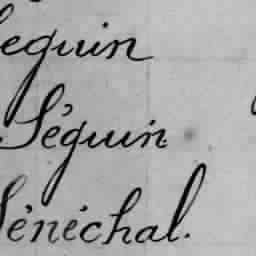 Seguin
Séguin
Sénéchal.